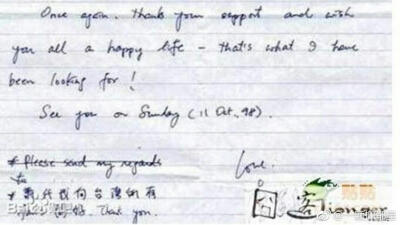 Once again. thanks your support and wish
you all a happy life – that's what I have
been looking for!
See you on Sunday (11 Oct, 98).
* Please send my regards
to
Love.
* 請代我向台灣的
好. Thank you.